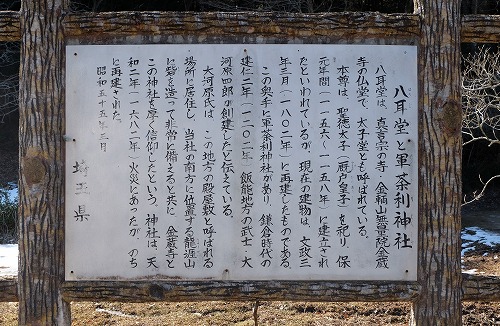 八耳堂と軍荼利神社
八耳堂は、真言宗の寺・金錫山無量院金蔵
寺の仏堂で、太子堂とも呼ばれている。
本尊は、聖徳太子（厩戸皇子）を祀り、保
元年間（一一五六〜一一五八年）に建立され
たといわれているが、現在の建物は、文政三
年三月（一八〇二年）に再建したものである。
この奥手に軍荼利神社があり、鎌倉時代の
建仁二年（一二〇二年）飯能地方の武士、大
河原四郎が創建したと伝えている。
大河原氏は、この地方の殿屋敷と呼ばれる
場所に居住し、当社の南方に位置する龍涯山
に砦を造って非常に備えると共に、金蔵寺と
この神社を厚く信仰したという。神社は、天
和二年（一六八二年）火災にあったが、のち
に再建された。
昭和五十五年三月
埼玉県